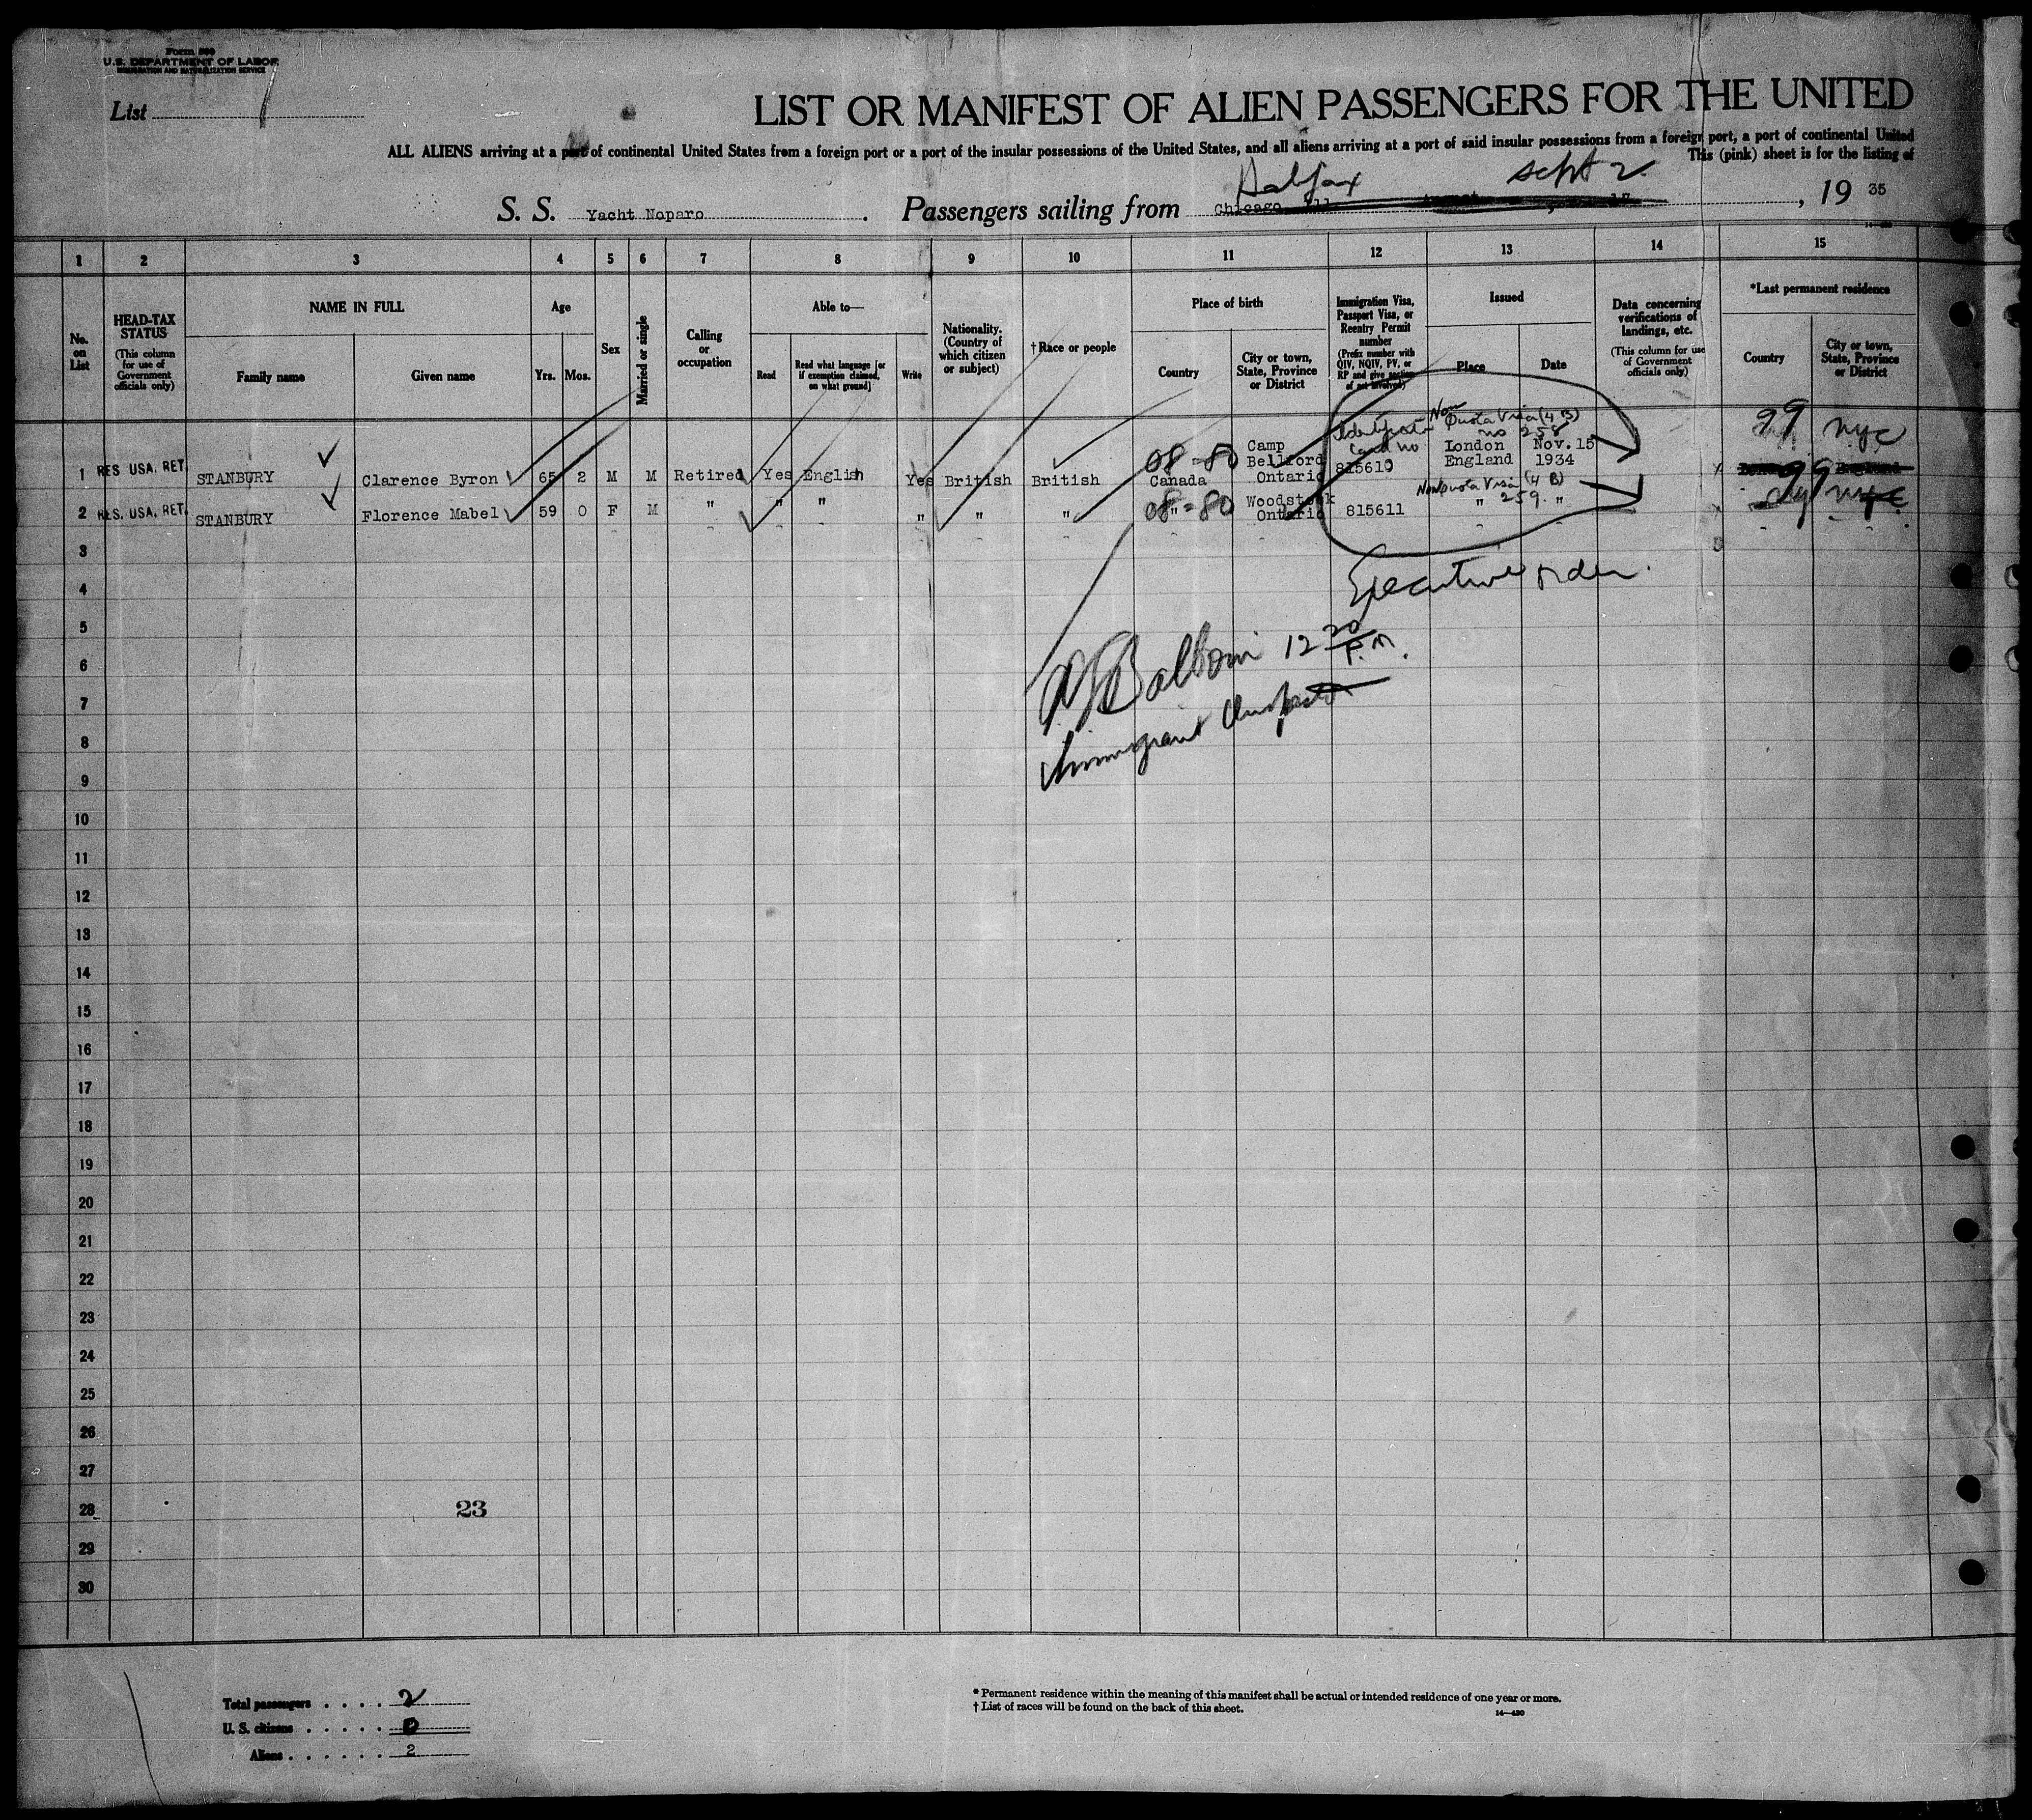 Form 500
U.S. DEPARTMENT OF LABOR
IMMIGRATION AND NATURALIZATION SERVICE
List 1
LIST OR MANIFEST OF ALIEN PASSENGERS FOR THE UNITED
ALL ALIENS arriving at a port of continental United States from a foreign port or a port of the insular possessions of the United States, and all aliens arriving at a port of said insular possessions from a foreign port, a port of continental United
This (pink) sheet is for the listing of
Halifax Sept 2
S. S. Yacht Noparo . Passengers sailing from Chicago Ill. August , 17 , 19 35
1 2 3 4 5 6 7 8 9 10 11 12 13 14 15
No. on List
HEAD-TAX STATUS
(This column for use of Government officials only)
NAME IN FULL
Family name
Given name
Age
Yrs. Mos.
Sex
Married or single
Calling or occupation
Able to—
Read
Read what language [or if exemption claimed, on what ground]
Write
Nationality. (Country of which citizen or subject)
†Race or people
Place of birth
Country
City or town, State, Province or District
Immigration Visa, Passport Visa, or Reentry Permit number
(Prefix number with QIV, NQIV, PV, or RP and give section of act involved)
Issued
Place
Date
Data concerning verifications of landings, etc.
(This column for use of Government officials only)
*Last permanent residence
Country
City or town, State, Province or District
1 RES USA. RET. STANBURY Clarence Byron 65 2 M M Retired Yes English Yes British British 08-80 Canada Camp Bellford Ontario Card no 815610 Non Quota Visa (4 B) no 258 London England Nov. 15 1934 99 nyc
2 RES. USA. RET. STANBURY Florence Mabel 59 0 F M " " " " " " 08-80 " Woodstock Ontario 815611 Nonquota Visa (4 B) 259. " " 99 nyc
3
4 Executive order.
5
6 Baldwin 12 20 P.M.
7 Immigrant Inspector
8
9
10
11
12
13
14
15
16
17
18
19
20
21
22
23
24
25
26
27
28 23
29
30
Total passengers . . . . 2
U. S. citizens . . . . . 0
Aliens . . . . . . 2
* Permanent residence within the meaning of this manifest shall be actual or intended residence of one year or more.
† List of races will be found on the back of this sheet.
14—430